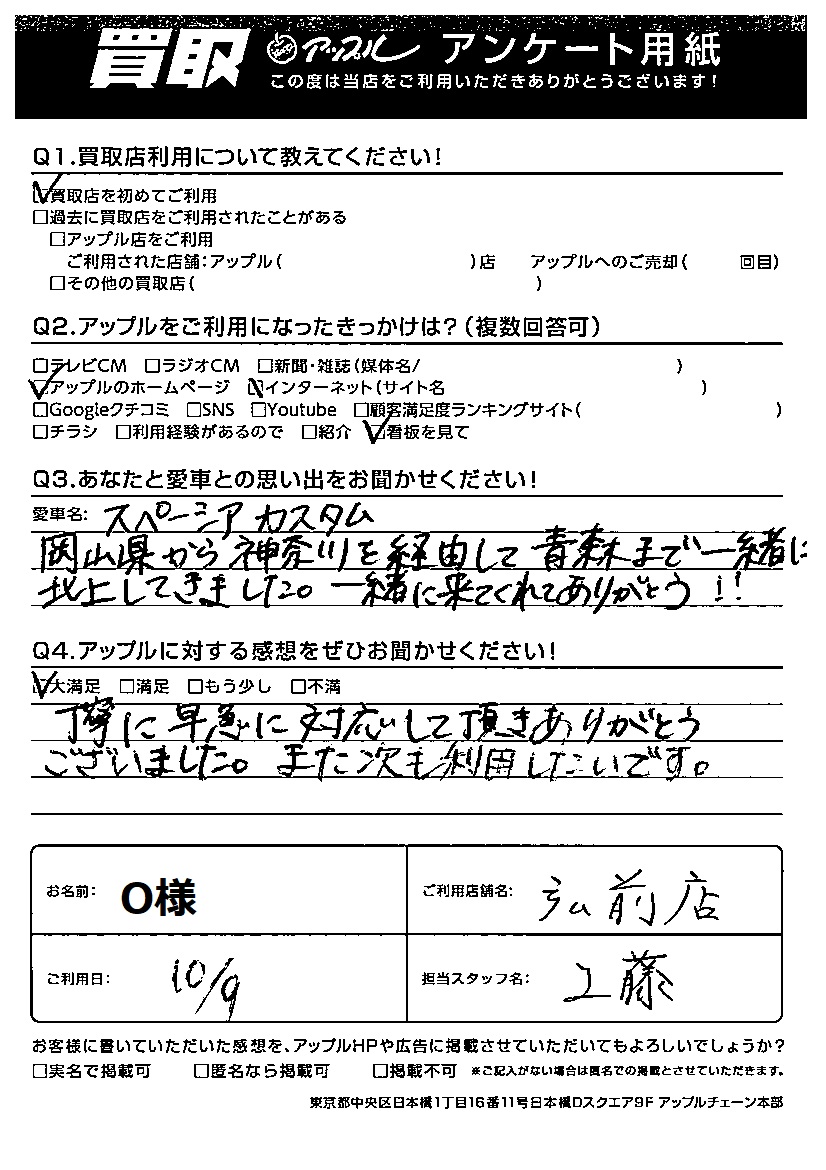 買取 アップル アンケート用紙
この度は当店をご利用いただきありがとうございます!
Q1.買取店利用について教えてください!
☑買取店を初めてご利用
□過去に買取店をご利用されたことがある
□アップル店をご利用
ご利用された店舗:アップル( )店 アップルへのご売却( 回目)
□その他の買取店( )
Q2.アップルをご利用になったきっかけは?(複数回答可)
□テレビCM □ラジオCM □新聞・雑誌(媒体名/ )
☑アップルのホームページ ☑インターネット(サイト名 )
□Googleクチコミ □SNS □Youtube □顧客満足度ランキングサイト( )
□チラシ □利用経験があるので □紹介 ☑看板を見て
Q3.あなたと愛車との思い出をお聞かせください!
愛車名: スペーシア カスタム
岡山県から神奈川を経由して青森まで一緒に
北上してきました。一緒に来てくれてありがとう!!
Q4.アップルに対する感想をぜひお聞かせください!
☑大満足 □満足 □もう少し □不満
丁寧に早急に対応して頂きありがとう
ございました。また次も利用したいです。
お名前: O様 ご利用店舗名: 弘前店
ご利用日: 10/9 担当スタッフ名: 工藤
お客様に書いていただいた感想を、アップルHPや広告に掲載させていただいてもよろしいでしょうか?
□実名で掲載可 □匿名なら掲載可 □掲載不可 ※ご記入がない場合は匿名での掲載とさせていただきます。
東京都中央区日本橋1丁目16番11号日本橋Dスクエア9F アップルチェーン本部